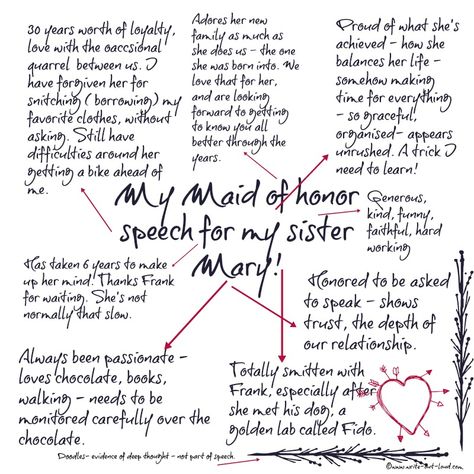 30 years worth of loyalty,
love with the oaccsional
quarrel between us. I
have forgiven her for
snitching ( borrowing) my
favorite clothes, without
asking. Still have
difficulties around her
getting a bike ahead of
me.
Adores her new
family as much as
she does us - the one
she was born into. We
love that for her,
and are looking
forward to getting
to know you all
better through the
years.
Proud of what she's
achieved - how she
balances her life -
somehow making
time for everything
- so graceful,
organised- appears
unrushed. A trick I
need to learn!
My Maid of honor
speech for my sister
Mary!
Generous,
kind, funny,
faithful, hard
working
Has taken 6 years to make
up her mind. Thanks Frank
for waiting. She's not
normally that slow.
Honored to be asked
to speak - shows
trust, the depth of
our relationship.
Always been passionate -
loves chocolate, books,
walking - needs to be
monitored carefully over the
chocolate.
Totally smitten with
Frank, especially after
she met his dog, a
golden lab called Fido.
Doodles- evidence of deep thought - not part of speech.
©www.write-out-loud.com